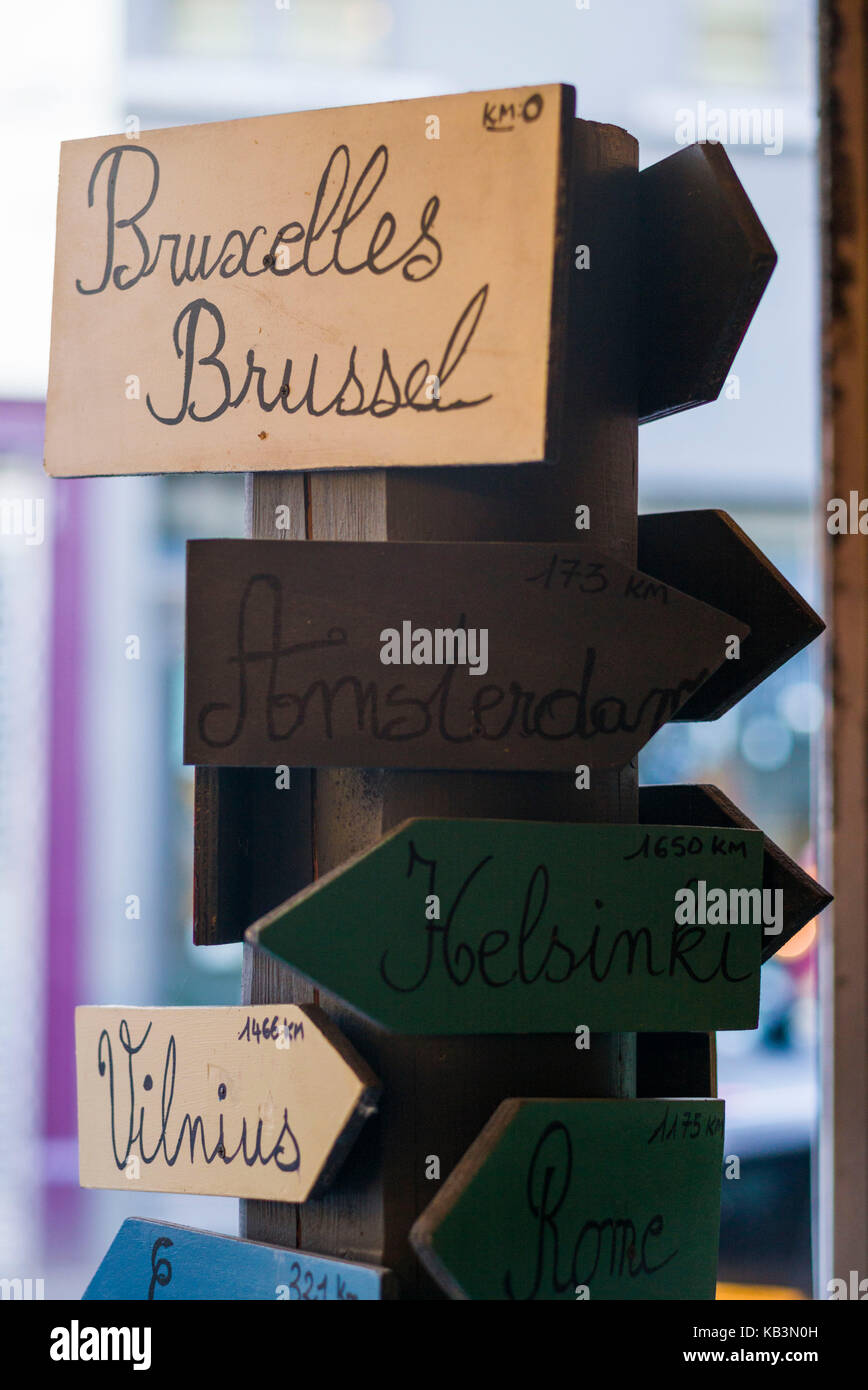 KM:0
Bruxelles
Brussel
173 KM
Amsterdam
1650 KM
Helsinki
1466 KM
Vilnius
1175 KM
Rome
321 KM
alamy
Image ID: KB3N0H
www.alamy.com